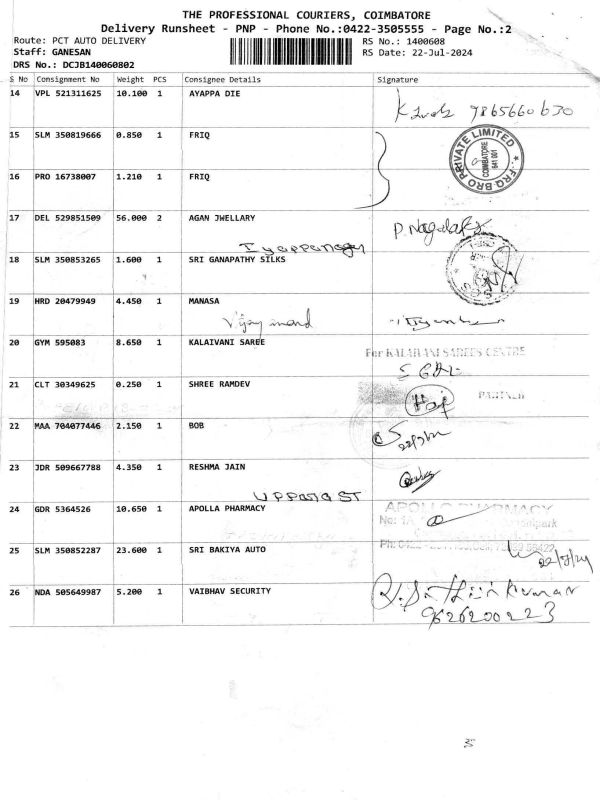 THE PROFESSIONAL COURIERS, COIMBATORE
Delivery Runsheet - PNP - Phone No.:0422-3505555 - Page No.:2
Route: PCT AUTO DELIVERY RS No.: 1400608
Staff: GANESAN RS Date: 22-Jul-2024
DRS No.: DCJB140060802
S No Consignment No Weight PCS Consignee Details Signature
14 VPL 521311625 10.100 1 AYAPPA DIE
9865660630
15 SLM 350819666 0.850 1 FRIQ
FRQ BRO PRIVATE LIMITED
COIMBATORE
641 001
16 PRO 16738007 1.210 1 FRIQ
17 DEL 529851509 56.000 2 AGAN JWELLARY
18 SLM 350853265 1.600 1 SRI GANAPATHY SILKS
19 HRD 20479949 4.450 1 MANASA
20 GYM 595083 8.650 1 KALAIVANI SAREE
For KALAIVANI SAREES CENTRE
21 CLT 30349625 0.250 1 SHREE RAMDEV
PARTNER
22 MAA 704077446 2.150 1 BOB
23 JDR 509667788 4.350 1 RESHMA JAIN
24 GDR 5364526 10.650 1 APOLLA PHARMACY
APOLLO PHARMACY
25 SLM 350852287 23.600 1 SRI BAKIYA AUTO
22/7/24
26 NDA 505649987 5.200 1 VAIBHAV SECURITY
9626200223